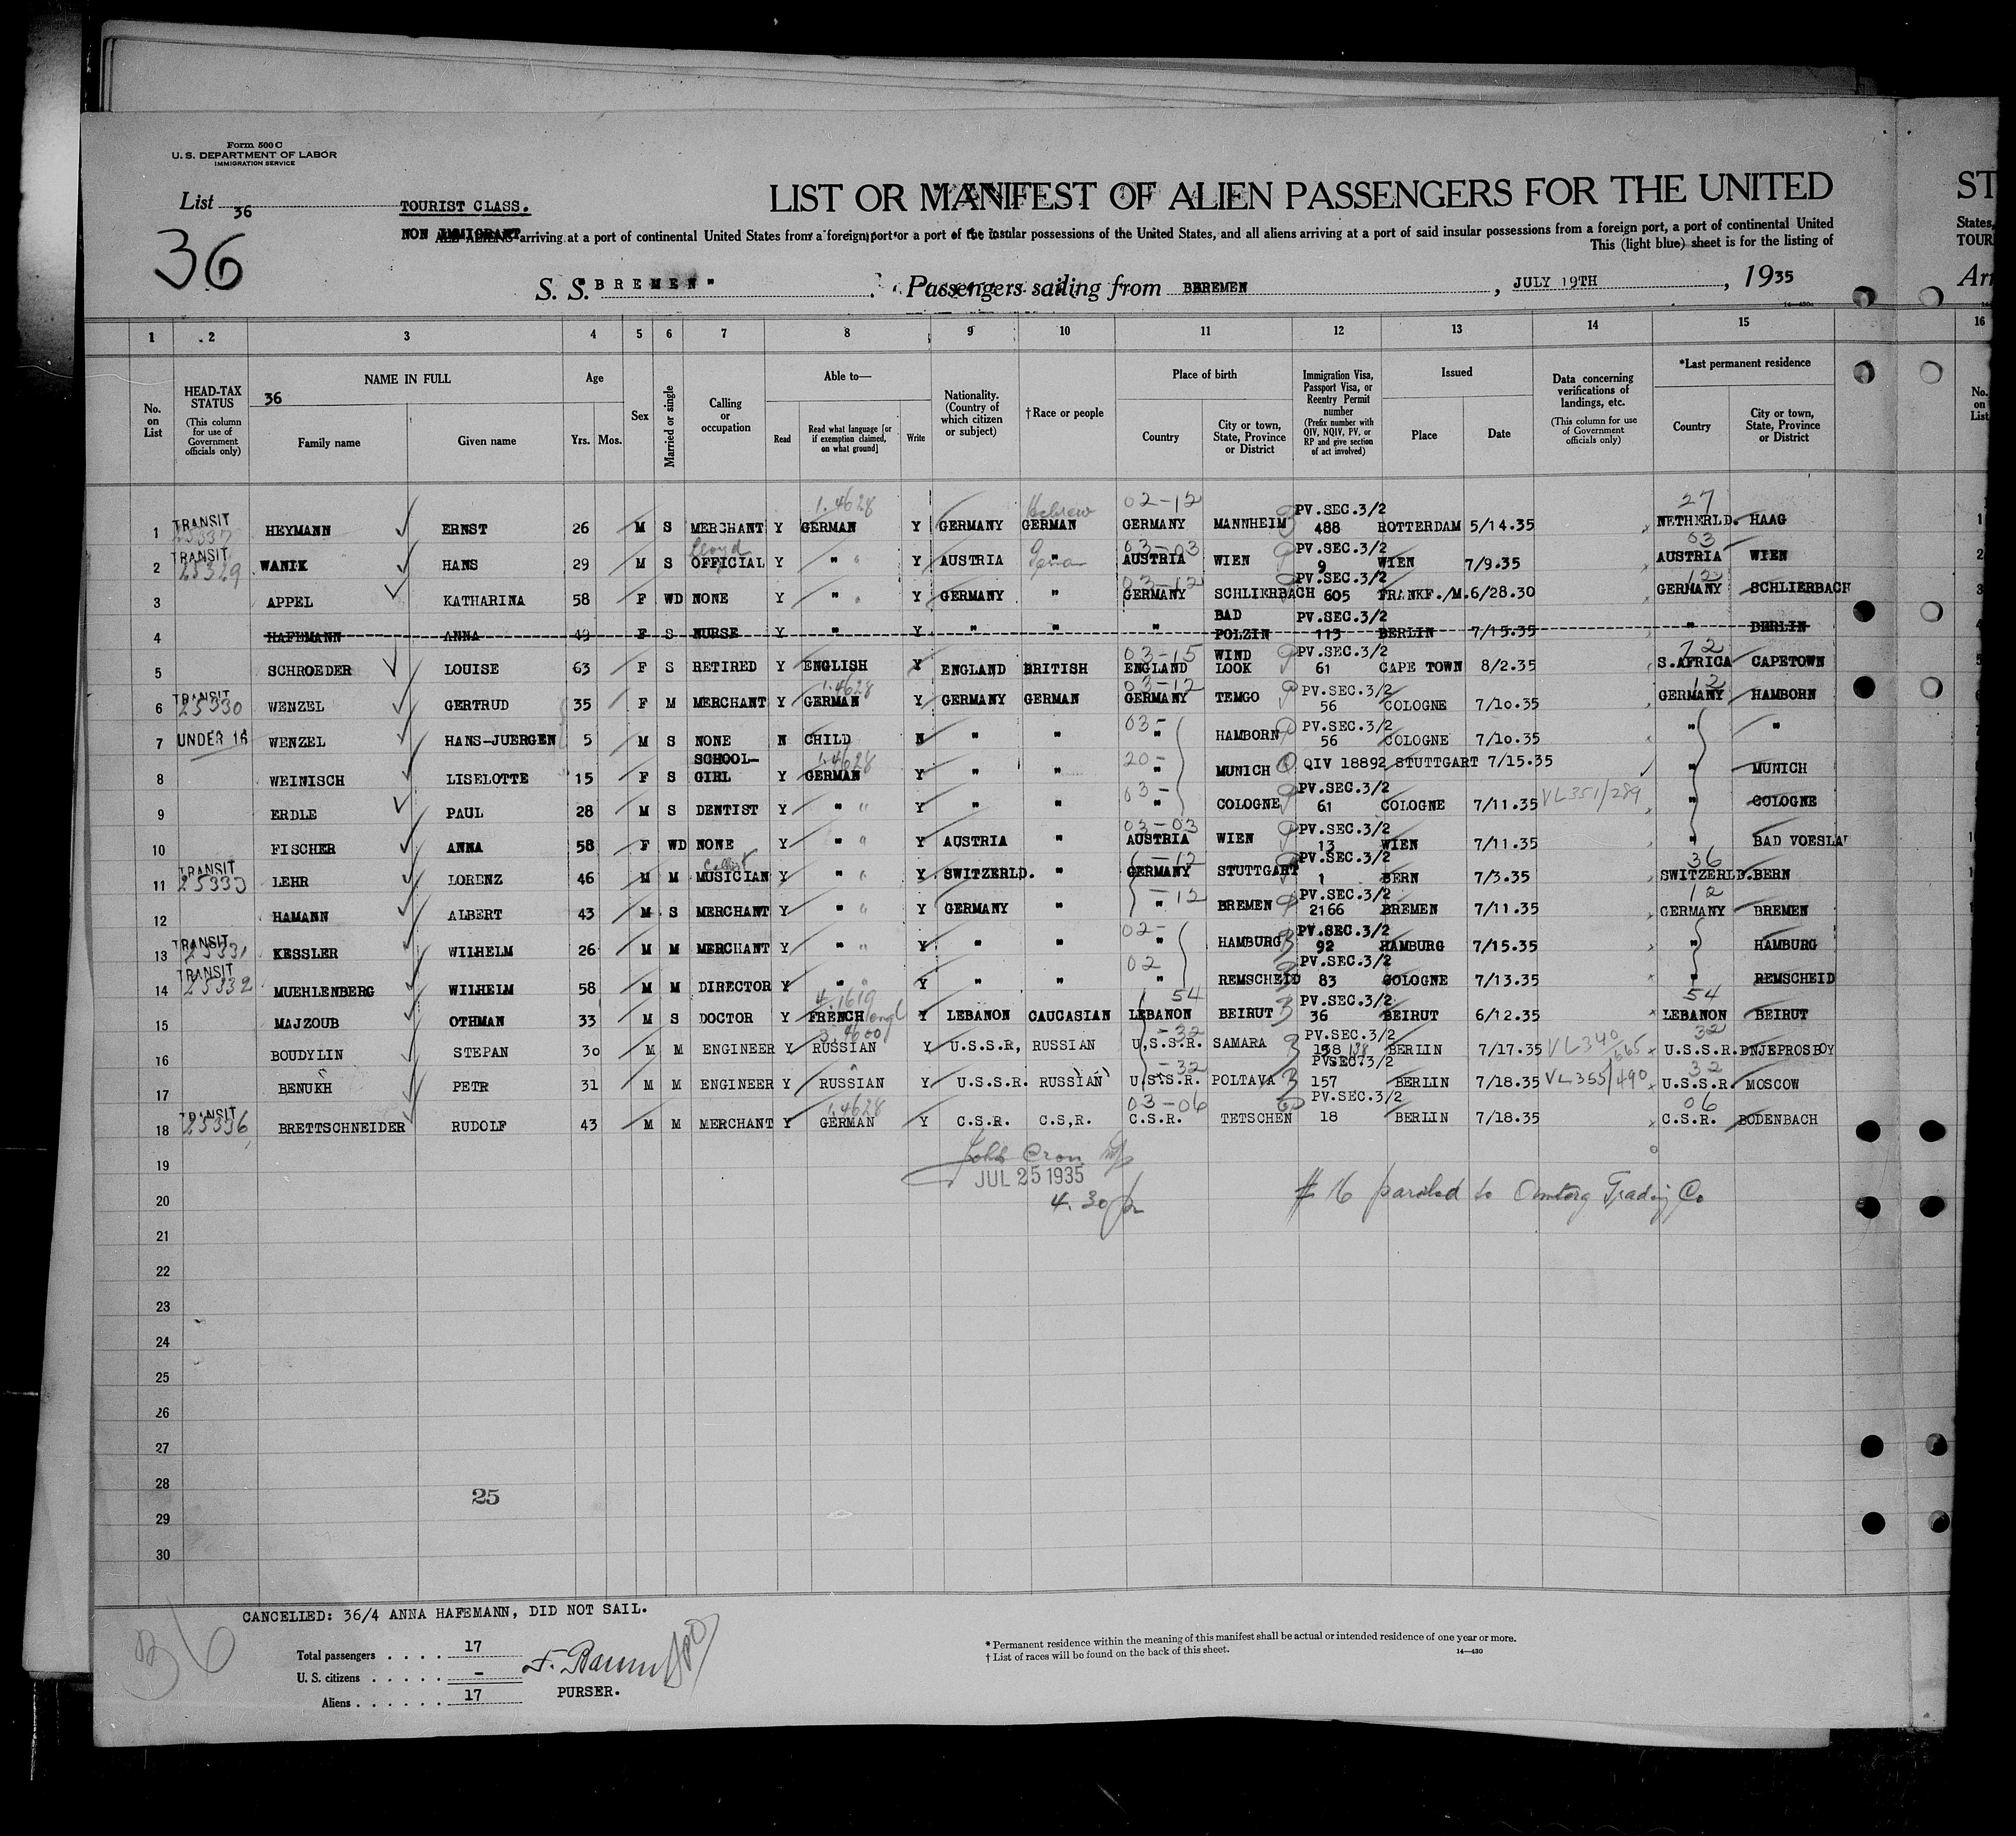 Form 500 C
U. S. DEPARTMENT OF LABOR
IMMIGRATION SERVICE
List 36
TOURIST CLASS.
36
LIST OR MANIFEST OF ALIEN PASSENGERS FOR THE UNITED
ST
NON IMMIGRANT ALL ALIENS arriving at a port of continental United States from a foreign port or a port of the insular possessions of the United States, and all aliens arriving at a port of said insular possessions from a foreign port, a port of continental United
States,
This (light blue) sheet is for the listing of
TOUR
S. S. "BREMEN" Passengers sailing from BBREMEN, JULY 19TH, 1935
Arr
1 2 3 4 5 6 7 8 9 10 11 12 13 14 15 16
No. on List
HEAD-TAX STATUS (This column for use of Government officials only)
NAME IN FULL
36
Family name
Given name
Age
Yrs. Mos.
Sex
Married or single
Calling or occupation
Able to—
Read
Read what language [or if exemption claimed, on what ground]
Write
Nationality. (Country of which citizen or subject)
† Race or people
Place of birth
Country
City or town, State, Province or District
Immigration Visa, Passport Visa, or Reentry Permit number (Prefix number with QIV, NQIV, PV, or RP and give section of act involved)
Issued
Place
Date
Data concerning verifications of landings, etc. (This column for use of Government officials only)
*Last permanent residence
Country
City or town, State, Province or District
No. on List
1.4628 Hebrew 02-12 27
1 TRANSIT HEYMANN ERNST 26 M S MERCHANT Y GERMAN Y GERMANY GERMAN GERMANY MANNHEIM PV.SEC.3/2 488 ROTTERDAM 5/14.35 NETHERLD. HAAG
Lloyd 03-03 03
2 TRANSIT 25329 WANIK HANS 29 M S OFFICIAL Y " Y AUSTRIA " AUSTRIA WIEN PV.SEC.3/2 9 WIEN 7/9.35 AUSTRIA WIEN
03-12 12
3 APPEL KATHARINA 58 F WD NONE Y " Y GERMANY " GERMANY SCHLIERBACH PV.SEC.3/2 605 FRANKF./M. 6/28.30 GERMANY SCHLIERBACH
4 HAFEMANN ANNA 49 F S NURSE Y " Y " " " BAD POLZIN PV.SEC.3/2 113 BERLIN 7/15.35 " BERLIN
03-15 72
5 SCHROEDER LOUISE 63 F S RETIRED Y ENGLISH Y ENGLAND BRITISH ENGLAND WIND LOOK PV.SEC.3/2 61 CAPE TOWN 8/2.35 S.AFRICA CAPETOWN
1.4628 03-12 12
6 TRANSIT 25330 WENZEL GERTRUD 35 F M MERCHANT Y GERMAN Y GERMANY GERMAN GERMANY TEMGO PV.SEC.3/2 56 COLOGNE 7/10.35 GERMANY HAMBORN
03-
7 UNDER 16 WENZEL HANS-JUERGEN 5 M S NONE N CHILD N " " " HAMBORN PV.SEC.3/2 56 COLOGNE 7/10.35 " "
1.4628 20-
8 WEINISCH LISELOTTE 15 F S SCHOOL-GIRL Y GERMAN Y " " " MUNICH QIV 18892 STUTTGART 7/15.35 " MUNICH
03-
9 ERDLE PAUL 28 M S DENTIST Y " Y " " " COLOGNE PV.SEC.3/2 61 COLOGNE 7/11.35 VL351/289 " COLOGNE
03-03
10 FISCHER ANNA 58 F WD NONE Y " Y AUSTRIA " AUSTRIA WIEN PV.SEC.3/2 13 WIEN 7/11.35 " BAD VOESLAU
-12 36
11 TRANSIT 25333 LEHR LORENZ 46 M M MUSICIAN Y " Y SWITZERLD. " GERMANY STUTTGART PV.SEC.3/2 1 BERN 7/3.35 SWITZERLD. BERN
-12 12
12 HAMANN ALBERT 43 M S MERCHANT Y " Y GERMANY " " BREMEN PV.SEC.3/2 2166 BREMEN 7/11.35 GERMANY BREMEN
02-
13 TRANSIT 25331 KESSLER WILHELM 26 M M MERCHANT Y " Y " " " HAMBURG PV.SEC.3/2 92 HAMBURG 7/15.35 " HAMBURG
02
14 TRANSIT 25332 MUEHLENBERG WILHELM 58 M M DIRECTOR Y " Y " " " REMSCHEID PV.SEC.3/2 83 COLOGNE 7/13.35 " REMSCHEID
4.1619 54 54
15 MAJZOUB OTHMAN 33 M S DOCTOR Y FRENCH engl Y LEBANON CAUCASIAN LEBANON BEIRUT PV.SEC.3/2 36 BEIRUT 6/12.35 LEBANON BEIRUT
3.4600 -32 32
16 BOUDYLIN STEPAN 30 M M ENGINEER Y RUSSIAN Y U.S.S.R, RUSSIAN U,S.S.R. SAMARA PV.SEC.3/2 158 BERLIN 7/17.35 VL340/665 U.S.S.R. DNJEPROSBOY
-32 32
17 BENUKH PETR 31 M M ENGINEER Y RUSSIAN Y U.S.S.R. RUSSIAN U.S.S.R. POLTAVA PVSEC.3/2 157 BERLIN 7/18.35 VL355/490 U.S.S.R. MOSCOW
1.4628 03-06 06
18 TRANSIT 25336 BRETTSCHNEIDER RUDOLF 43 M M MERCHANT Y GERMAN Y C.S.R. C.S,R. C.S.R. TETSCHEN PV.SEC.3/2 18 BERLIN 7/18.35 C.S.R. BODENBACH
19
JUL 25 1935
20
4.30
# 16 paroled to Amtorg Trading Co
21
22
23
24
25
26
27
28
25
29
30
CANCELLED: 36/4 ANNA HAFEMANN, DID NOT SAIL.
36
Total passengers . . . . 17
U. S. citizens . . . . . -
Aliens . . . . . . 17
PURSER.
* Permanent residence within the meaning of this manifest shall be actual or intended residence of one year or more.
† List of races will be found on the back of this sheet.
14—430